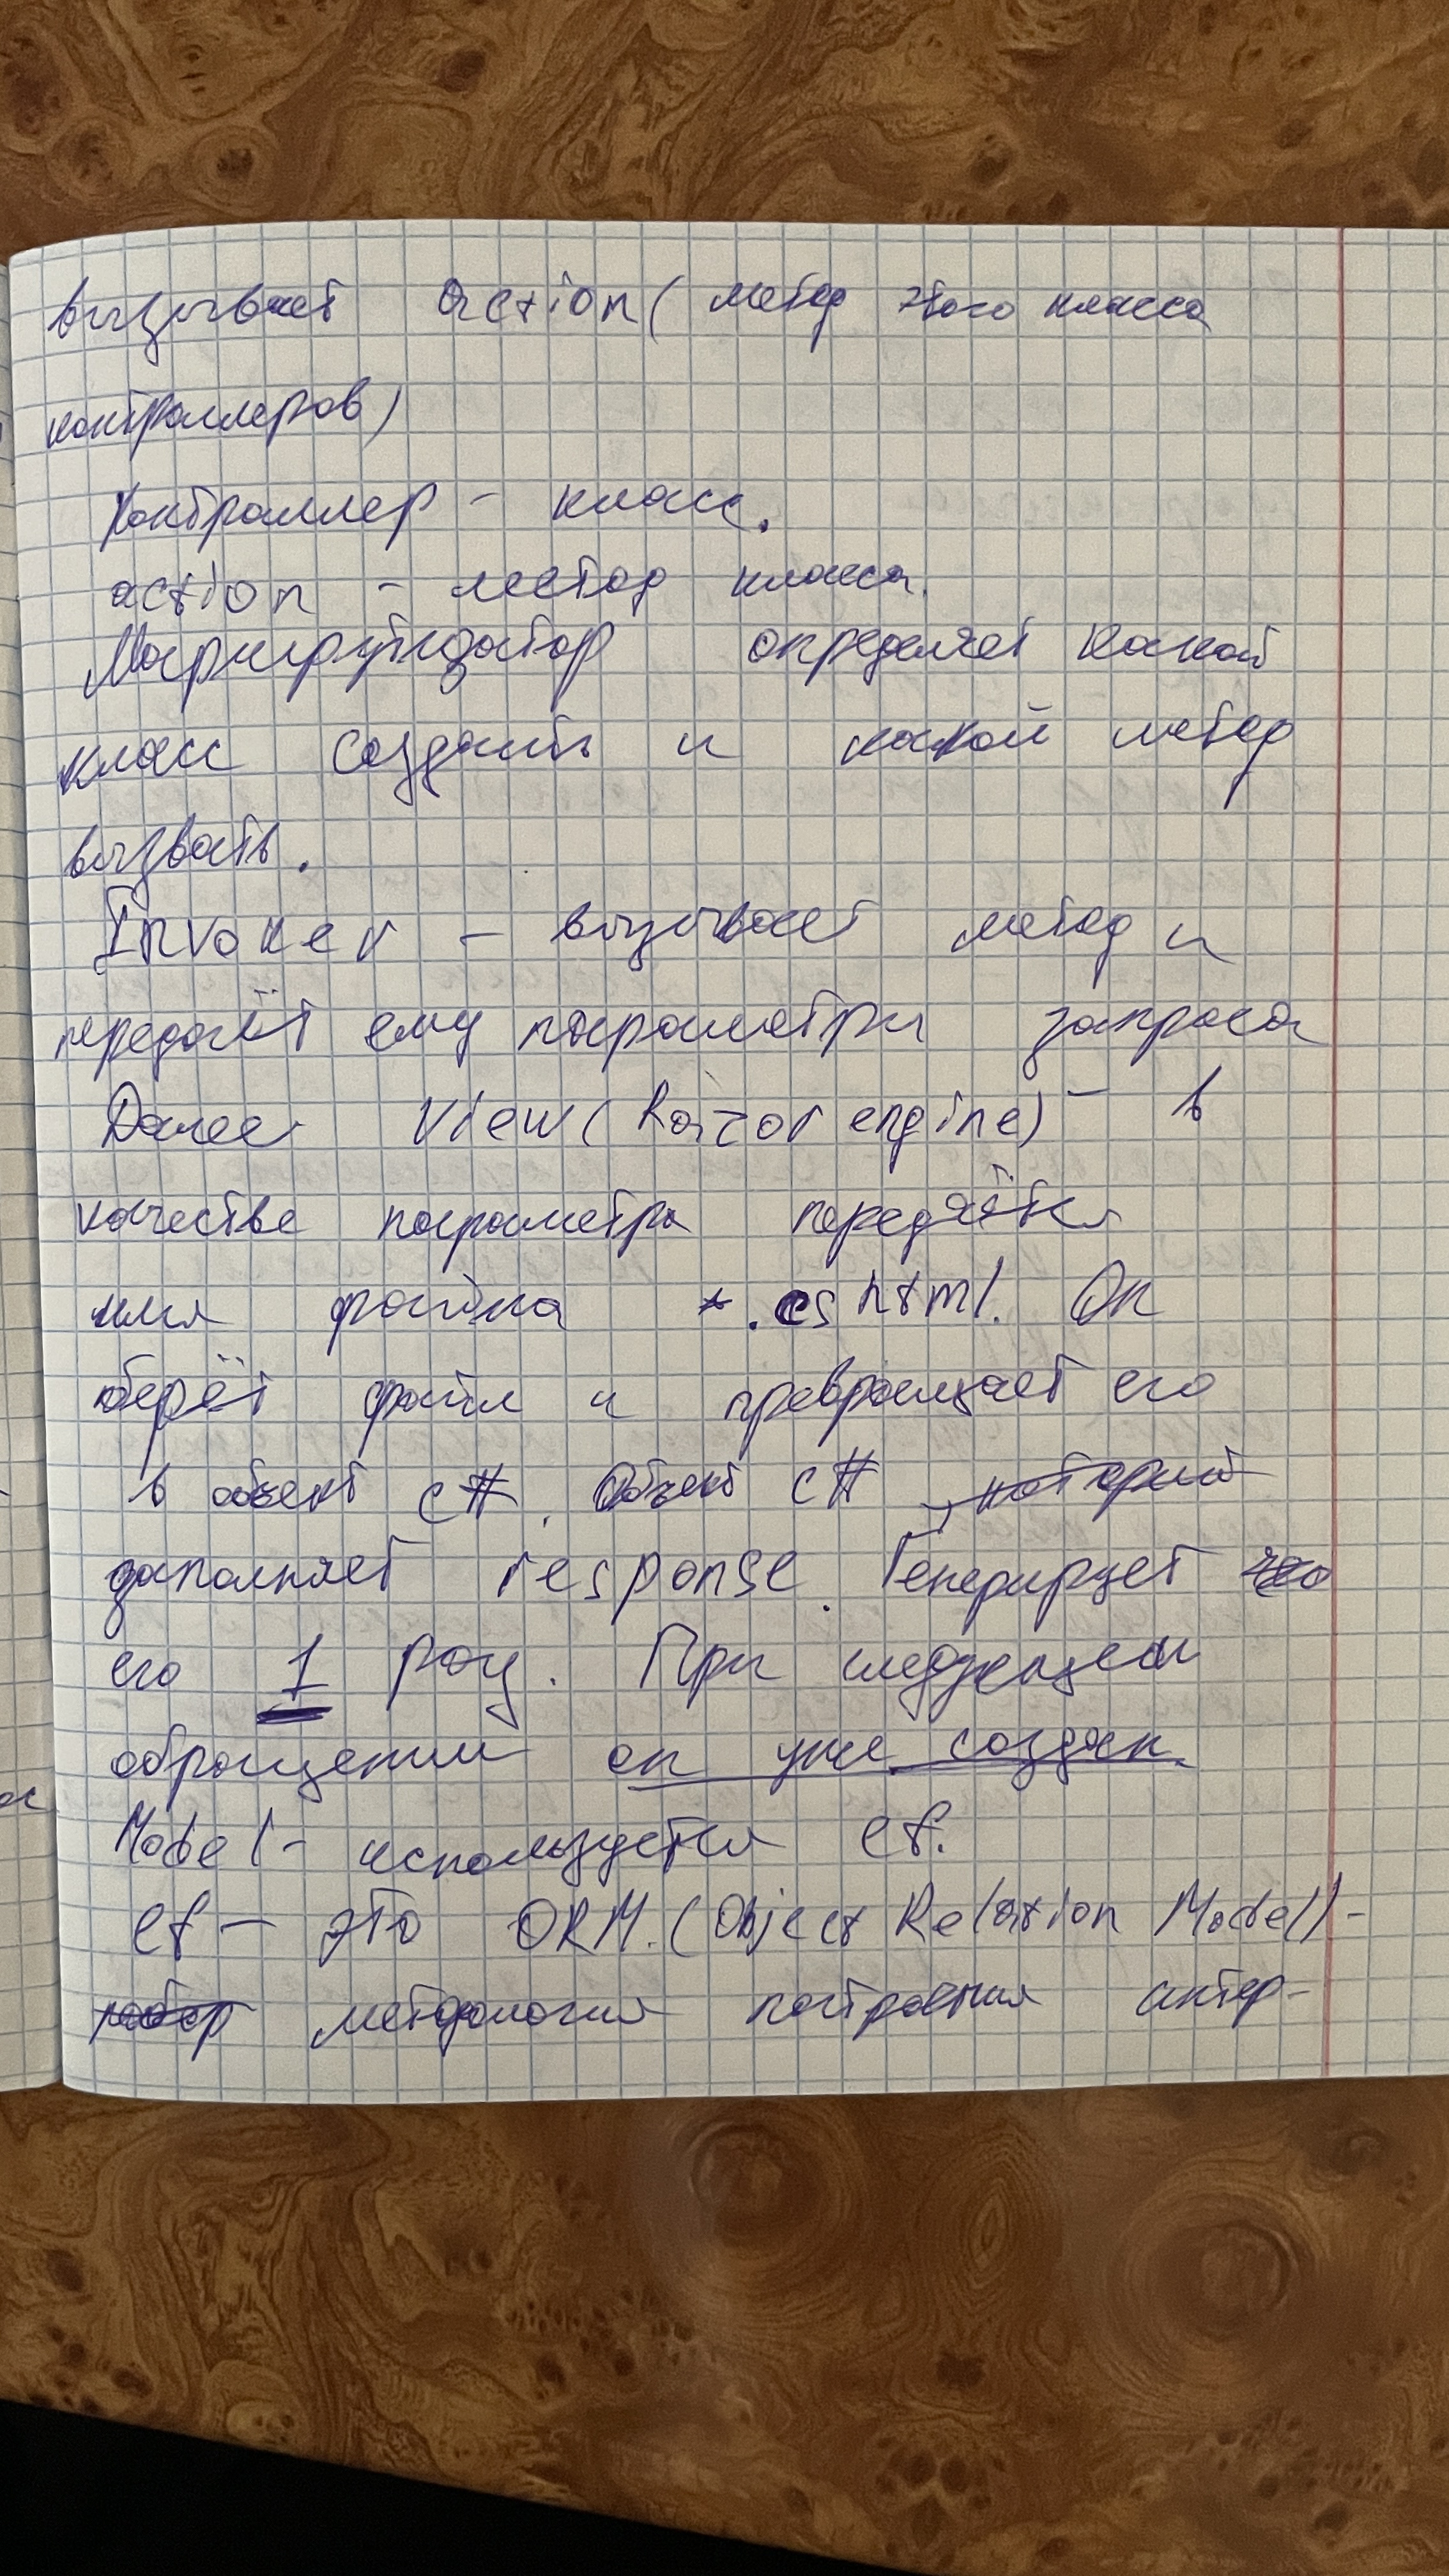 вызывает action( метод этого класса
контроллеров)
Контроллер - класс.
action - метод класса.
Маршрутизатор определяет какой
класс создать и какой метод
вызвать.
Invoker - вызывает метод и
передаёт ему параметры запроса
Далее View(Razor engine) - в
качестве параметра передаётся
имя файла *.cshtml. Он
берёт файл и превращает его
в объект c#. Объект c# , который
заполняет response. Генерирует
его 1 раз. При следующем
обращении он уже создан.
Model - используется ef.
ef - это ORM. (Object Relation Model) -
набор методология построения интер-